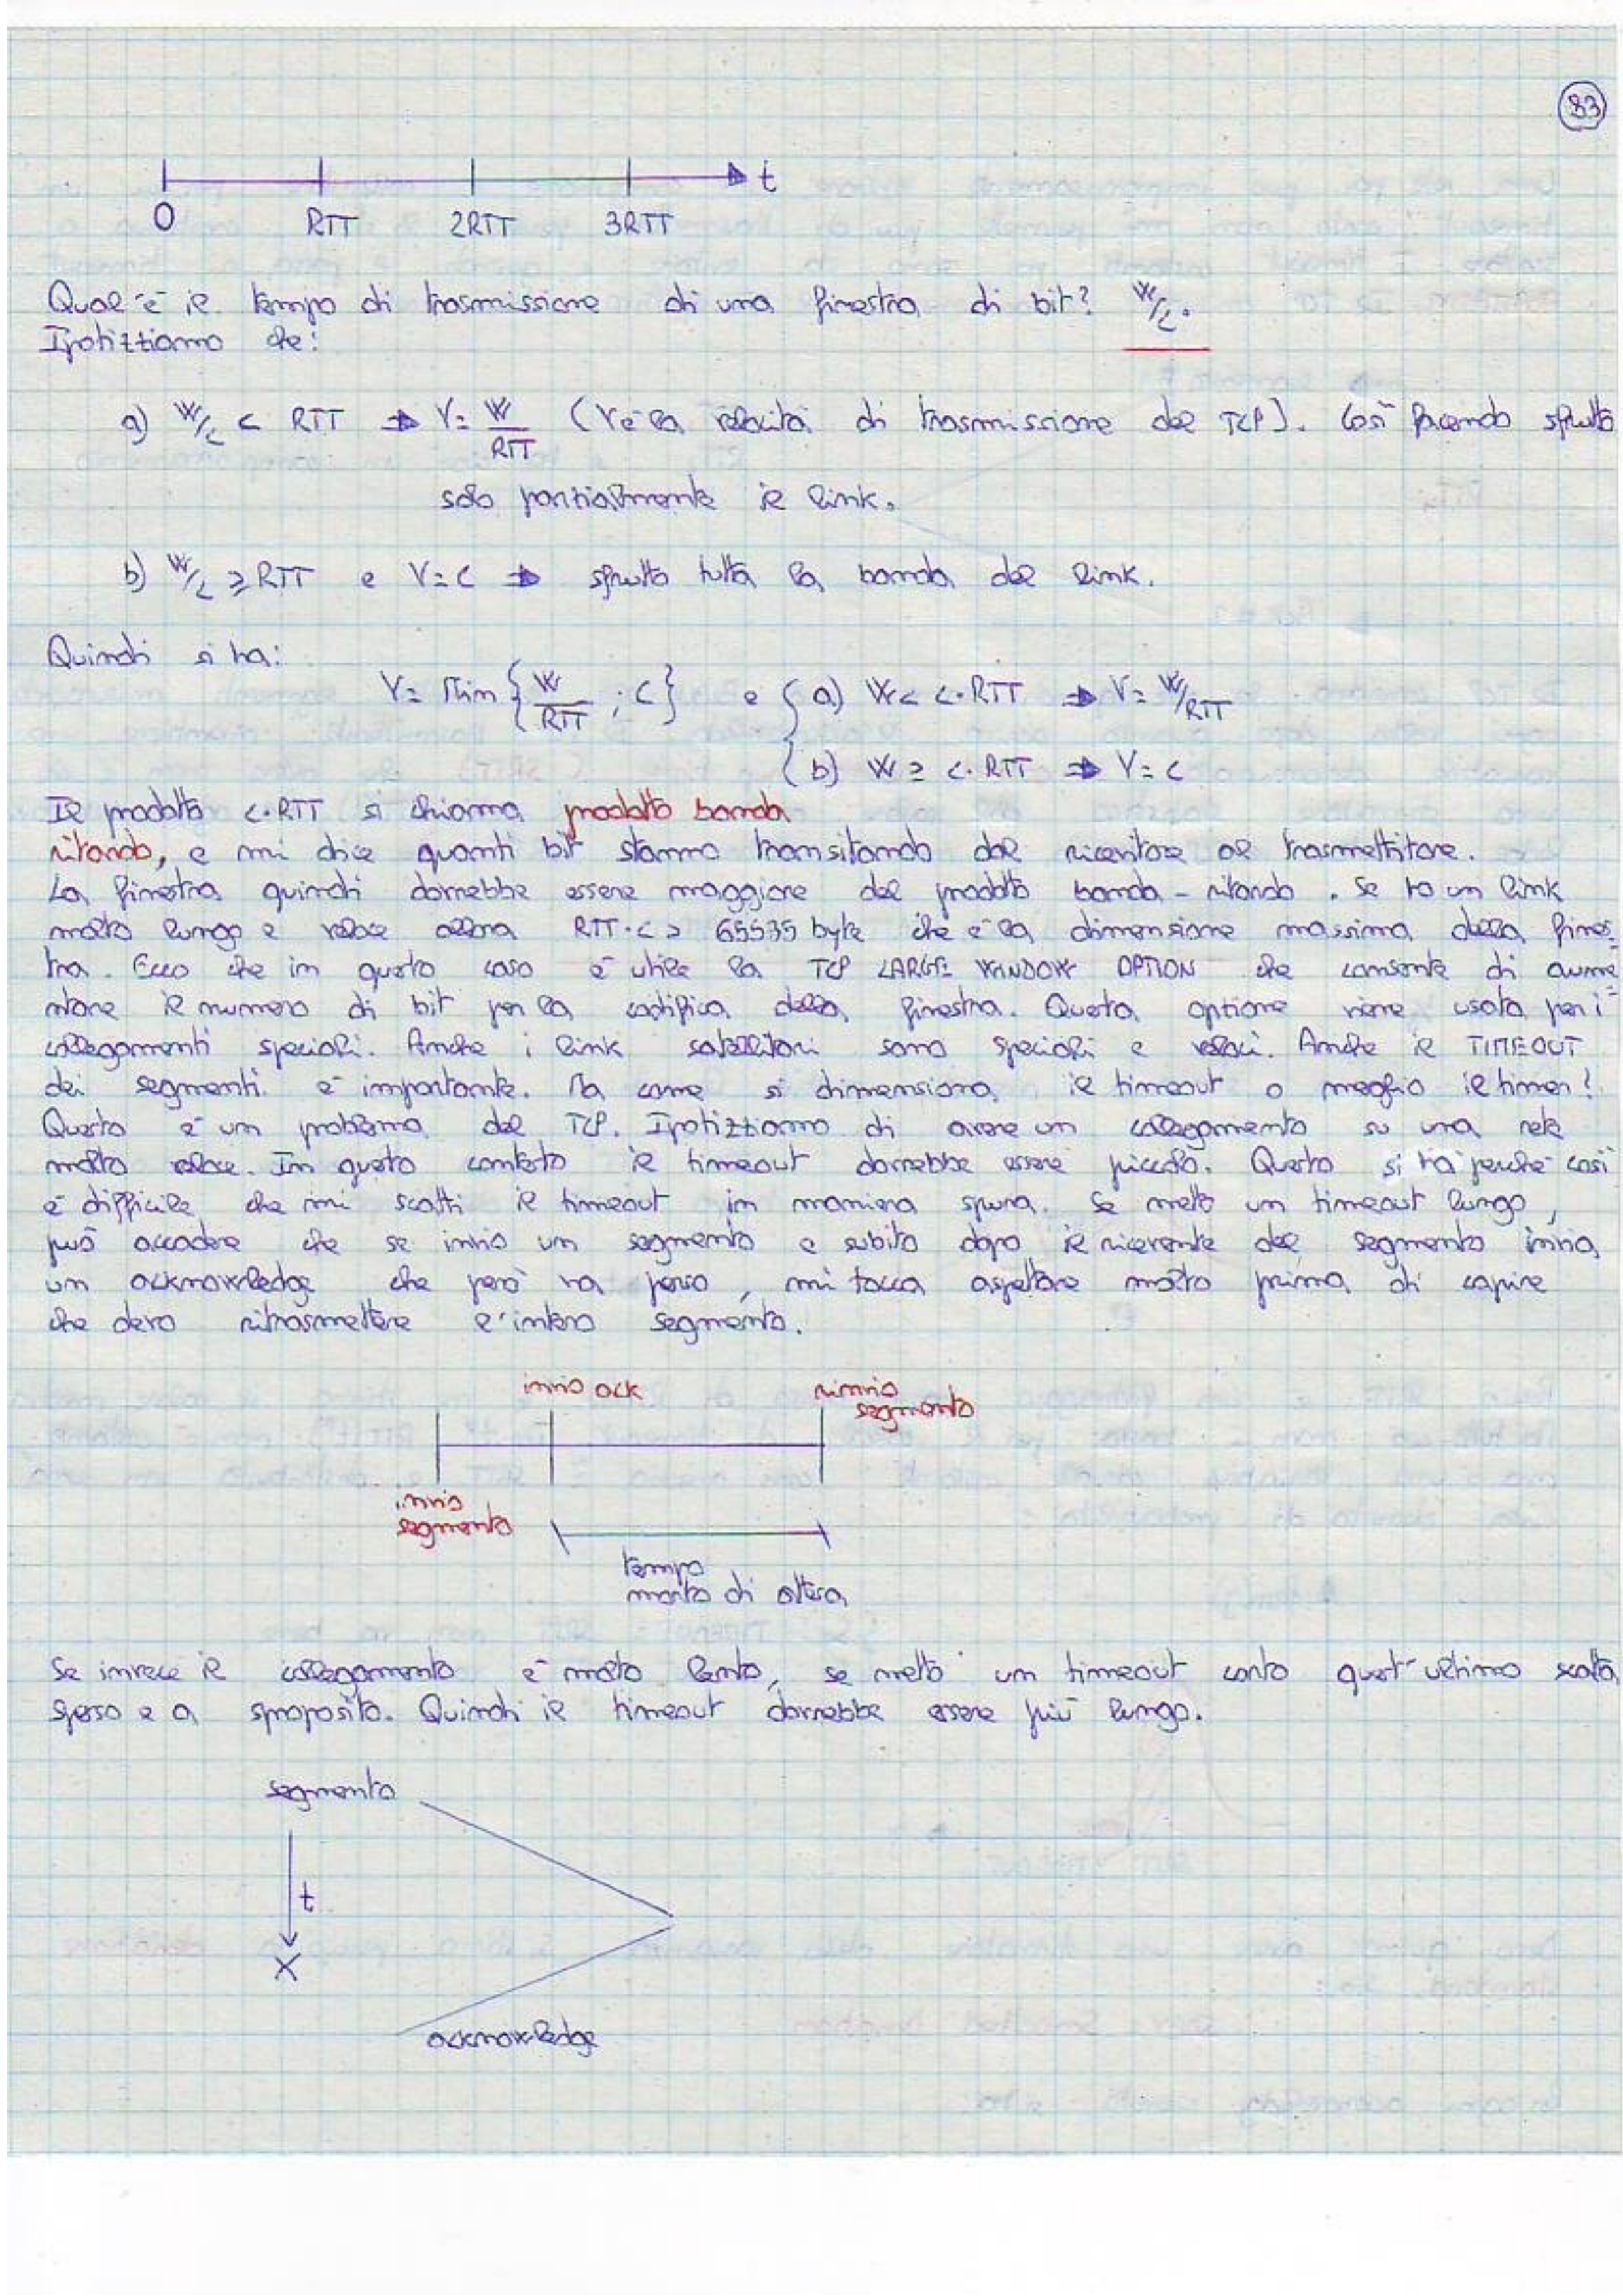 83
t
0 RTT 2RTT 3RTT
Qual'è il tempo di trasmissione di una finestra di bit? W/C.
Ipotizziamo che:
a) W/C < RTT ⇒ V= W/RTT (V è la velocità di trasmissione del TCP). Così facendo sfrutto
solo parzialmente il link.
b) W/C ≥ RTT e V=C ⇒ sfrutto tutta la banda del link.
Quindi si ha:
V= Min { W/RTT ; C } e { a) W< C·RTT ⇒ V= W/RTT
b) W ≥ C·RTT ⇒ V=C
Il prodotto C·RTT si chiama prodotto banda
ritardo, e mi dice quanti bit stanno transitando dal ricevitore al trasmettitore.
La finestra quindi dovrebbe essere maggiore del prodotto banda-ritardo. Se ho un link
molto lungo e veloce allora RTT·C > 65535 byte che è la dimensione massima della fines-
tra. Ecco che in questo caso è utile la TCP LARGE WINDOW OPTION che consente di aume-
ntare il numero di bit per la codifica della finestra. Questa opzione viene usata per i
collegamenti speciali. Anche i link satellitari sono speciali e veloci. Anche il TIMEOUT
dei segmenti è importante. Ma come si dimensiona il timeout o meglio il timer?
Questo è un problema del TCP. Ipotizziamo di avere un collegamento su una rete
molto veloce. In questo contesto il timeout dovrebbe essere piccolo. Questo si ha perché così
è difficile che mi scatti il timeout in maniera spuria. Se metto un timeout lungo,
può accadere che se invio un segmento e subito dopo il ricevente del segmento invia
un acknowledge che però va perso, mi tocca aspettare molto prima di capire
che devo ritrasmettere l'intero segmento.
invio ack
rinvio
segmento
invio
segmento
tempo
morto di attesa
Se invece il collegamento è molto lento, se metto un timeout corto quest'ultimo scatta
spesso e a sproposito. Quindi il timeout dovrebbe essere più lungo.
segmento
t
X
acknowledge